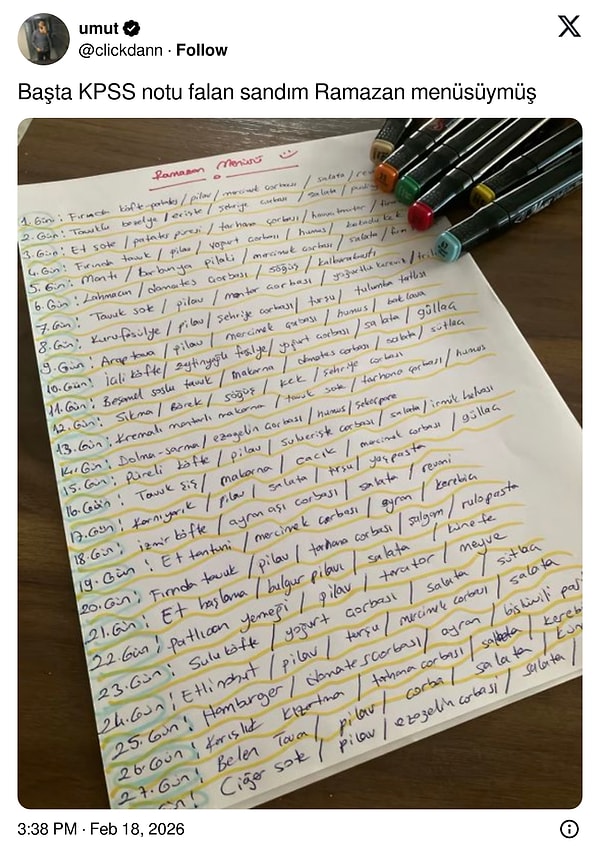 umut
@clickdann · Follow
X
Başta KPSS notu falan sandım Ramazan menüsüymüş
Ramazan Menüsü
1. Gün: Fırında köfte-patates / pilav / mercimek çorbası / salata /
2. Gün: Tavuklu bezelye / erişte / şehriye çorbası / salata /
3. Gün: Et sote / patates püresi / tarhana çorbası /
4. Gün: Fırında tavuk / pilav / yoğurt çorbası / humus /
5. Gün: Mantı / barbunya pilaki / mercimek çorbası / salata /
6. Gün: Lahmacun / domates çorbası / söğüş /
7. Gün: Tavuk sote / pilav / mantar çorbası /
8. Gün: Kurufasülye / pilav / şehriye çorbası / turşu / tulumba tatlısı
9. Gün: Arap tava / pilav / mercimek çorbası / humus / baklava
10. Gün: İçli köfte / zeytinyağlı fasülye / yoğurt çorbası / salata / güllaç
11. Gün: Beşamel soslu tavuk / makarna / domates çorbası / salata / sütlaç
12. Gün: Sıkma / Börek / söğüş / kek / şehriye çorbası
13. Gün: Kremalı mantarlı makarna / tavuk sote / tarhana çorbası / humus
14. Gün: Dolma-sarma / ezogelin çorbası / humus / şekerpare
15. Gün: Püreli köfte / pilav / çorbası / salata / irmik helvası
16. Gün: Tavuk şiş / makarna / cacık / mercimek çorbası / güllaç
17. Gün: Karnıyarık / pilav / salata / turşu / yaş pasta
18. Gün: İzmir köfte / ayran aşı çorbası / salata / revani
19. Gün: Et tantuni / mercimek çorbası / ayran / kerebiç
20. Gün: Fırında tavuk / pilav / tarhana çorbası / şalgam / rulo pasta
21. Gün: Et haşlama / bulgur pilavı / salata / künefe
22. Gün: Patlıcan yemeği / pilav / tarator / meyve
23. Gün: Sulu köfte / yoğurt çorbası / salata / sütlaç
24. Gün: Etli nohut / pilav / turşu / mercimek çorbası / salata
25. Gün: Hamburger / domates çorbası / ayran / bisküvili pas
26. Gün: Karışık kızartma / tarhana çorbası / salata / kereb
27. Gün: Belen Tava / pilav / çorba / salata / kün
Gün: Ciğer sote / pilav / ezogelin çorbası / salata /
3:38 PM · Feb 18, 2026